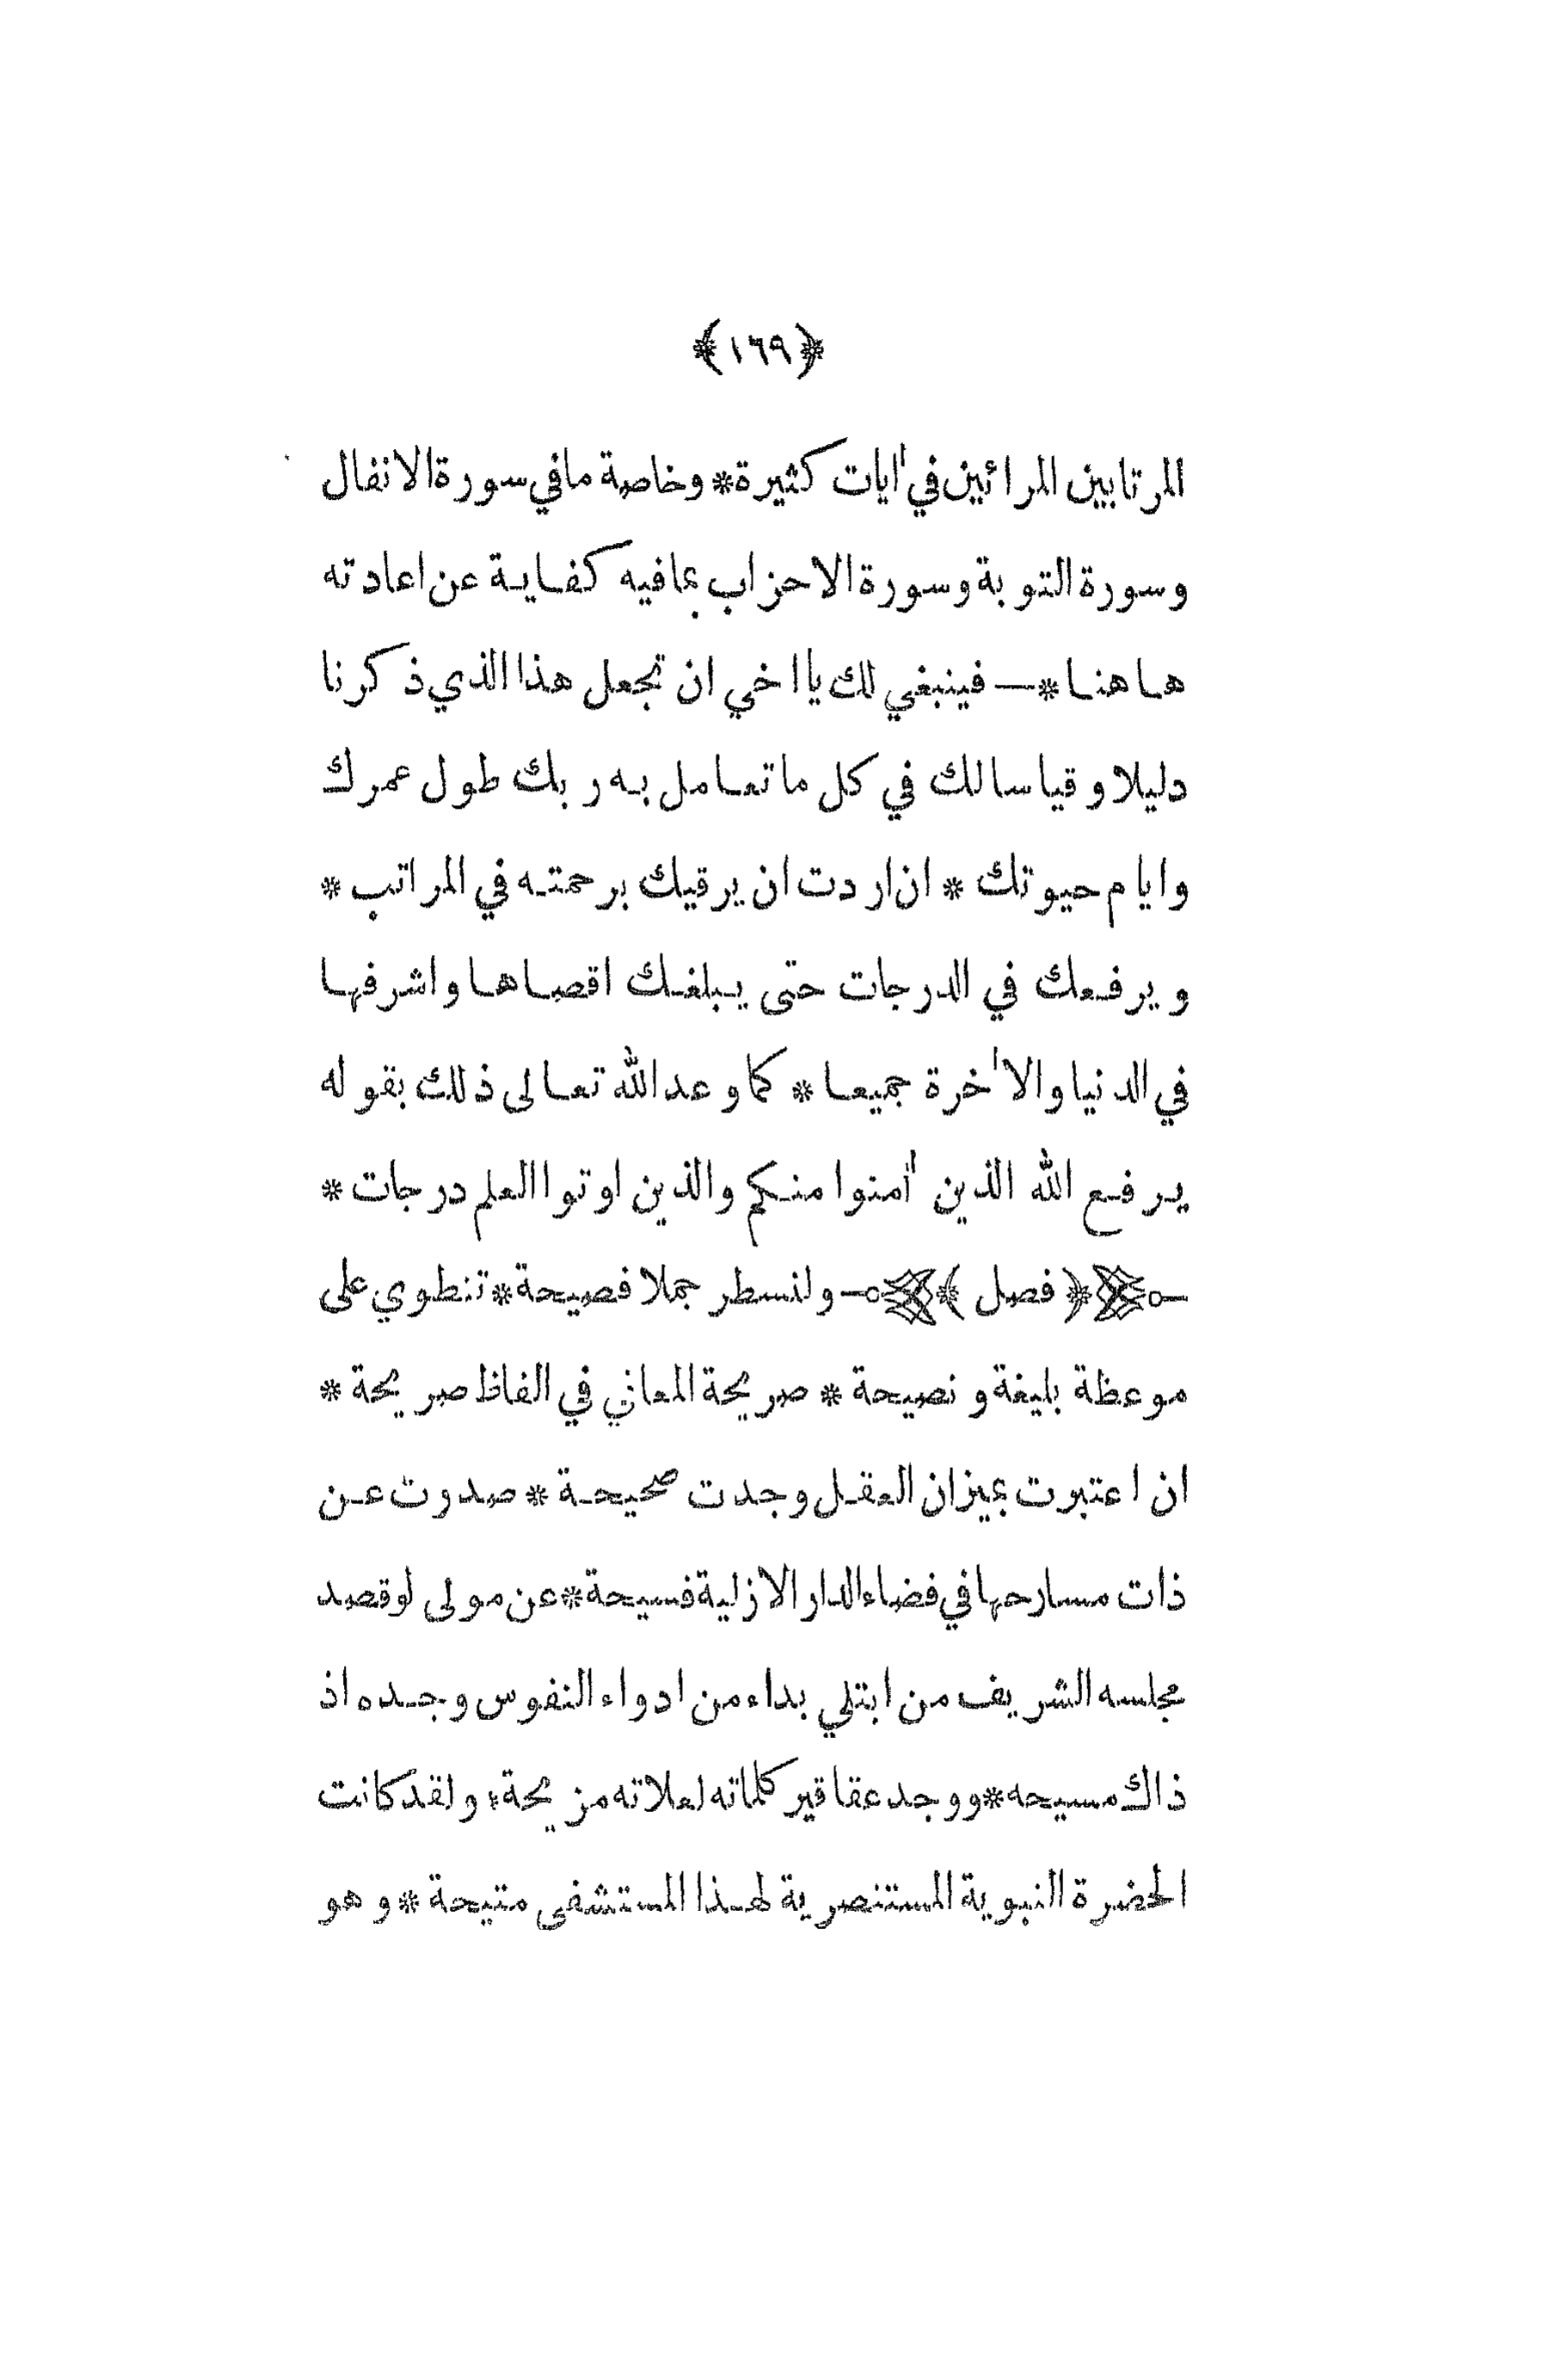 ﴿١٦٩﴾
المرتابين المرائين في اٰيات كثيرة * وخاصة مافي سورة الانفال
وسورة التوبة وسورة الاحزاب بمافيه كفاية عن اعادته
هاهنا * — فينبغي لك يا اخي ان تجعل هذا الذي ذكرنا
دليلا وقياسا لك في كل ما تعامل به ربك طول عمرك
وايام حيوتك * ان اردت ان يرقيك برحمته في المراتب *
ويرفعك في الدرجات حتى يبلغك اقصاها واشرفها
في الدنيا والاٰخرة جميعا * كما وعد الله تعالى ذلك بقوله
يرفع الله الذين اٰمنوا منكم والذين اوتوا العلم درجات *
﴿ فصل ﴾ ولنسطر جملا فصيحة * تنطوي على
موعظة بليغة ونصيحة * صريحة المعاني في الفاظ صريحة *
ان اعتبرت بميزان العقل وجدت صحيحة * صدوت عن
ذات مسارحها في فضاء الدار الازلية فسيحة * عن مولى لو قصد
مجلسه الشريف من ابتلي بداء من ادواء النفوس وجده اذ
ذاك مسيحه * ووجد عقاقير كلماته لعلاته مزيحة * ولقد كانت
الحضرة النبوية المستنصرية لهذا المستشفى متيحة * وهو